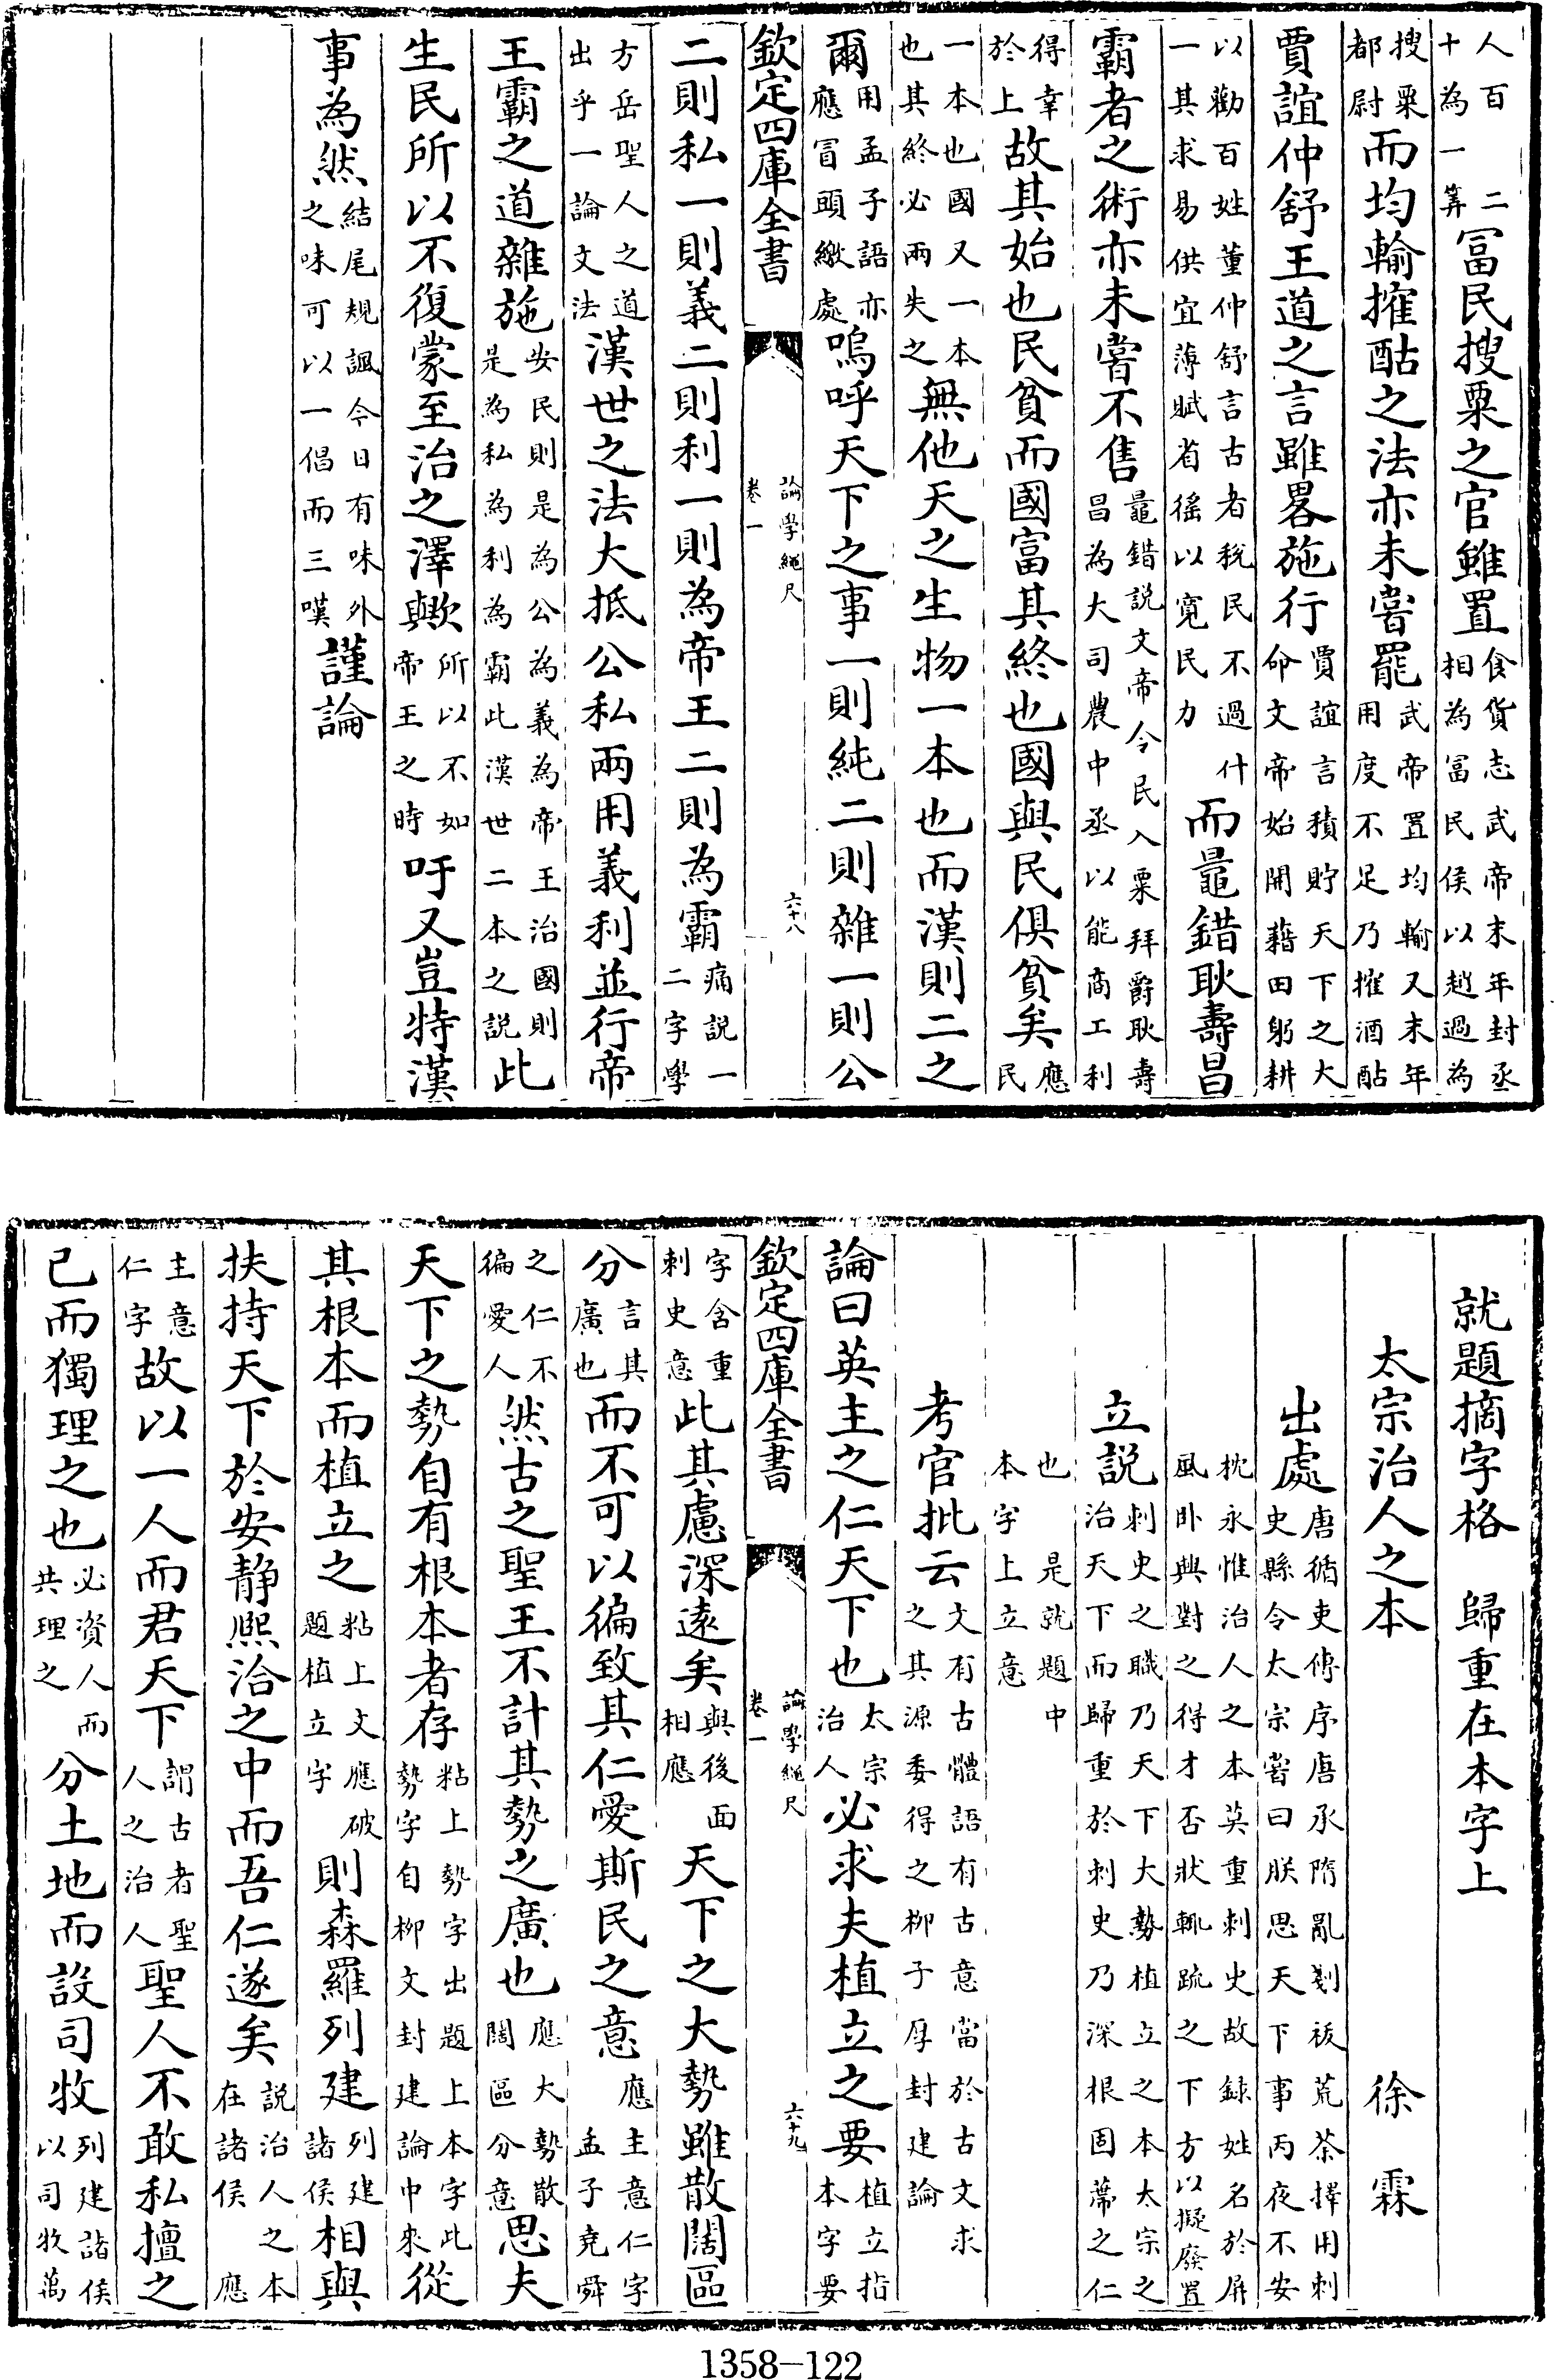 人百二十為一筭富民搜粟之官雖置食貨志武帝末年封丞相為富民侯以趙過為
搜粟都尉而均輸搉酤之法亦未嘗罷武帝置均輸又末年用度不足乃搉酒酤
賈誼仲舒王道之言雖畧施行賈誼言積貯天下之大命文帝始開藉田躬耕
以勸百姓董仲舒言古者稅民不過什一其求易供宜薄賦省徭以寛民力而鼂錯耿壽昌
霸者之術亦未嘗不售鼂錯説文帝令民入粟拜爵耿壽昌為大司農中丞以能商工利
得幸於上故其始也民貧而國富其終也國與民俱貧矣應民
一本也國又一本也其終必兩失之無他天之生物一本也而漢則二之
爾用孟子語亦應冒頭繳處嗚呼天下之事一則純二則雜一則公
欽定四庫全書 論學繩尺 卷一 六十八
二則私一則義二則利一則為帝王二則為霸痛説一二字學
方岳聖人之道出乎一論文法漢世之法大抵公私兩用義利並行帝
王霸之道雜施安民則是為公為義為帝王治國則是為私為利為霸此漢世二本之説此
生民所以不復蒙至治之澤歟所以不如帝王之時吁又豈特漢
事為然結尾規諷今日有味外之味可以一倡而三嘆謹論
就題摘字格 歸重在本字上
太宗治人之本 徐霖
出處唐循吏傳序唐承隋亂剗祓荒荼擇用刺史縣令太宗嘗曰朕思天下事丙夜不安
枕永惟治人之本莫重刺史故録姓名於屏風卧興對之得才否狀輒疏之下方以擬廢置
立説刺史之職乃天下大勢植立之本太宗之治天下而歸重於刺史乃深根固蔕之仁
也是就題中本字上立意
考官批云文有古體語有古意當於古文求之其源委得之柳子厚封建論
論曰英主之仁天下也太宗治人必求夫植立之要植立指本字要
欽定四庫全書 論學繩尺 卷一 六十九
字含重刺史意此其慮深遠矣與後面相應天下之大勢雖散闊區
分言其廣也而不可以徧致其仁愛斯民之意應主意仁字孟子堯舜
之仁不徧愛人然古之聖王不計其勢之廣也應大勢散闊區分意思夫
天下之勢自有根本者存粘上勢字出題上本字此勢字自柳文封建論中來從
其根本而植立之粘上文應破題植立字則森羅列建列建諸侯相與
扶持天下於安静熈洽之中而吾仁遂矣説治人之本在諸侯應
主意仁字故以一人而君天下謂古者聖人之治人聖人不敢私擅之
已而獨理之也必資人而共理之分土地而設司牧列建諸侯以司牧萬
1358-122